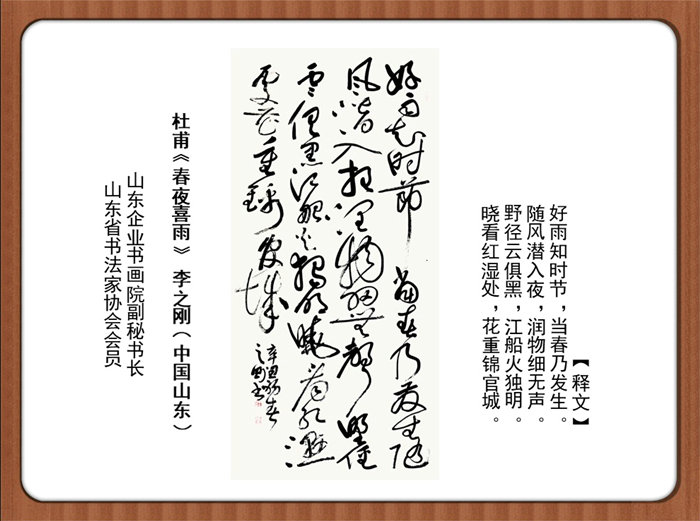 【释文】
好雨知时节，当春乃发生。
随风潜入夜，润物细无声。
野径云俱黑，江船火独明。
晓看红湿处，花重锦官城。
好雨知时节当春乃发生随
风潜入夜润物细无声野径
云俱黑江船火独明晓看红湿
处花重锦官城
之刚书
杜甫《春夜喜雨》 李之刚（中国山东）
山东企业书画院副秘书长
山东省书法家协会会员